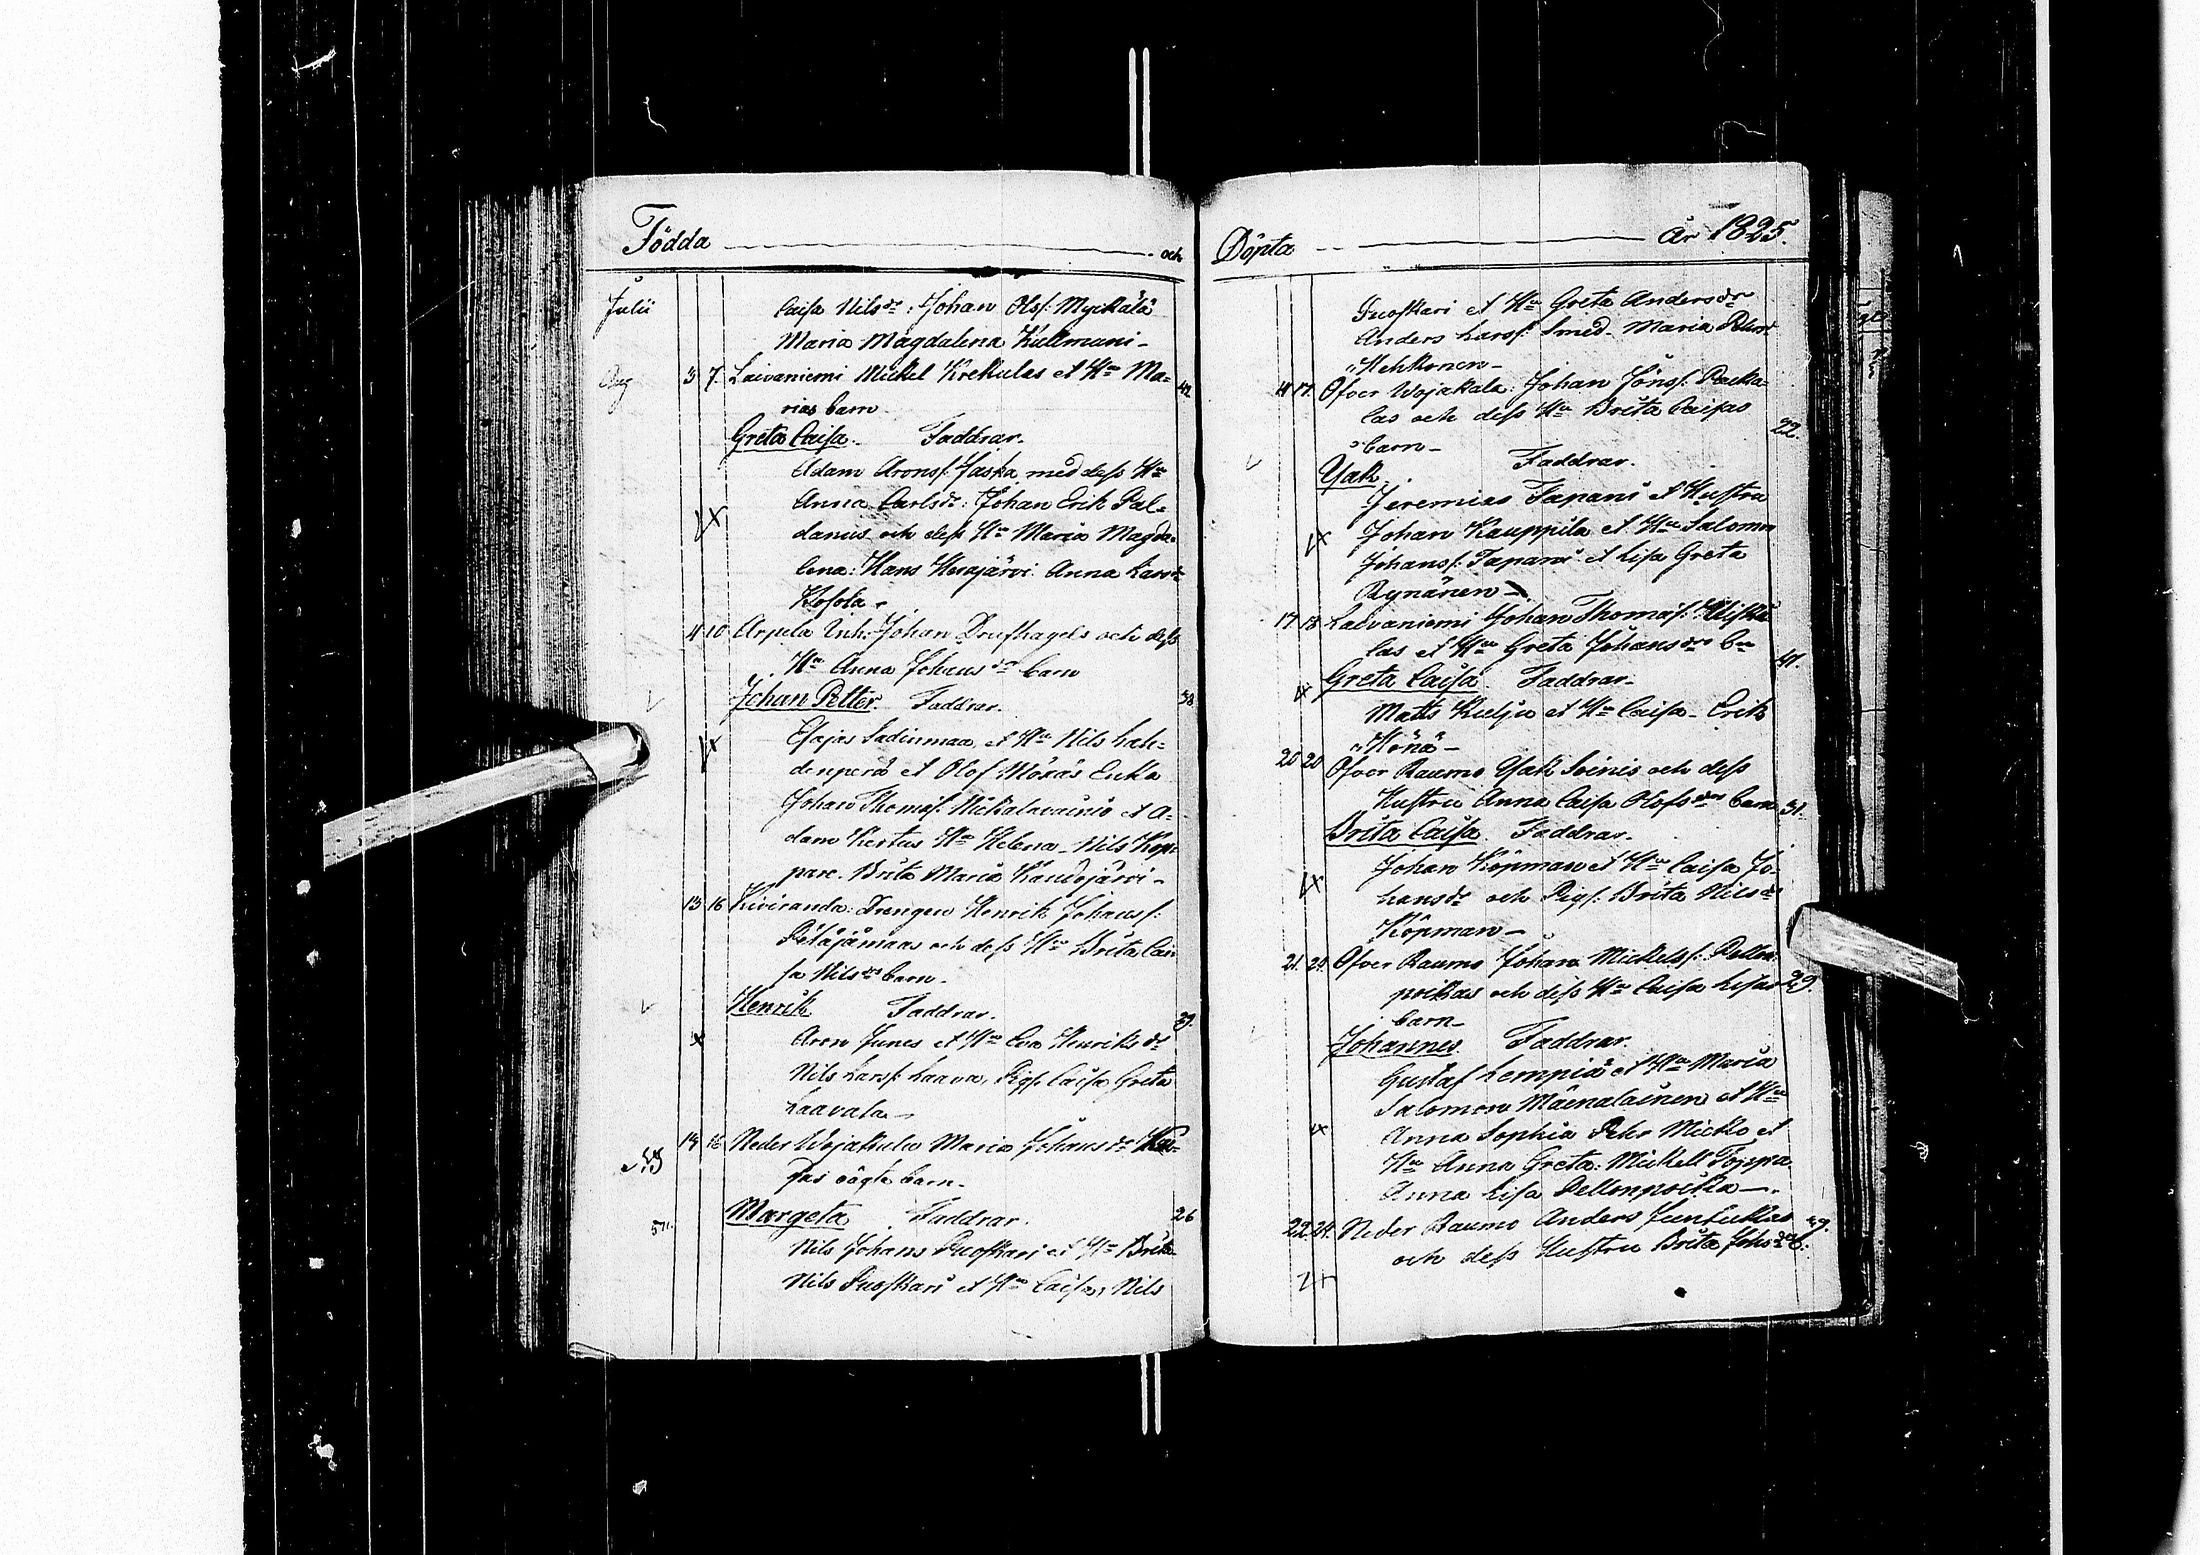 Födda och
Julii Caisa Nilsdr: Johan Olss: Myckälä
Maria Magdalena Kullmuni-
Aug 3 7. Laivaniemi Mickel Krekulas et Hu Ma=
rias barn 42.
Greta Caisa. Faddrar.
Adam Aronss: Jaska med dess Hu
Anna Carlsdr: Johan Erik Pal=
danius och dess Hu Maria Magda=
lena: Hans Herajärvi. Anna Larsdr
Kosola.
4 10 Arpela Inh: Johan Drufhagels och dess
Hu Anna Johansdr barn
Johan Petter. Faddrar. 38
Esajas Sadinmaa, et Hu Nils Lah=
denperä et Olof Möräs Enka
Johan Thomass: Nickalavainio et A=
dam Kertus Hu Helena. Nils Kop=
pare. Brita Maria Kandojärvi-
13 16 Kiviranda: Drengen Henrik Johanss:
Pätäjämaas och dess Hu Brita Cai
sa Nilsdrs barn.
Henrik Faddrar. 39.
Aron Junes et Hu Eva Henriksdr
Nils Larss: Laava, Pig: Caisa Greta
Laavala-
14 16 Neder Wojakala Maria Johansdr
oägta barn.
Margeta Faddrar. 26
Nils Johans Puoskari et Hu Brita
Nils Puoskari et Hu Caisa, Nils
Döpta År 1825.
Puoskari et Hu Greta Andersdr
Anders Larss: Smed. Maria
Hehkonen-
14 17. Öfver Wojakala Johan Jönss: Packa=
las och dess Hu Brita Caisas
barn- 22.
Isak. Faddrar.
Jeremias Tapani et Hustru
Johan Kauppila et Hu Salomon
Johanss: Tapani et Lisa Greta
Rynänen-
17 18 Laivaniemi Johan Thomass:
las et Hu Greta Johansdrs bn 41.
Greta Caisa. Faddrar-
Matts Kulju et Hu Caisa- Erik
Hönä-
20 20 Öfver Raumo Isak Soinis och dess
Hustru Anna Caisa Olofsdrs barn 31.
Brita Caisa. Faddrar.
Johan Köpman et Hu Caisa Jo=
hansdr och Pig: Brita Nilsdr
Köpman-
21. 24 Öfver Raumo Johan Mickelss: Pellon=
poikas och dess Hu Caisa Lisas 29.
barn-
Johannes. Faddrar.
Gustaf Lempiä et Hu Maria
Salomon Mäenalainen et Hu
Anna Sophia Pehr Micko et
Hu Anna Greta: Mickell Toppa
Anna Lisa Pellonpoika-.
22. 24. Neder Raumo Anders Juntukas 29.
och dess Hustru Brita Johsdrs b: